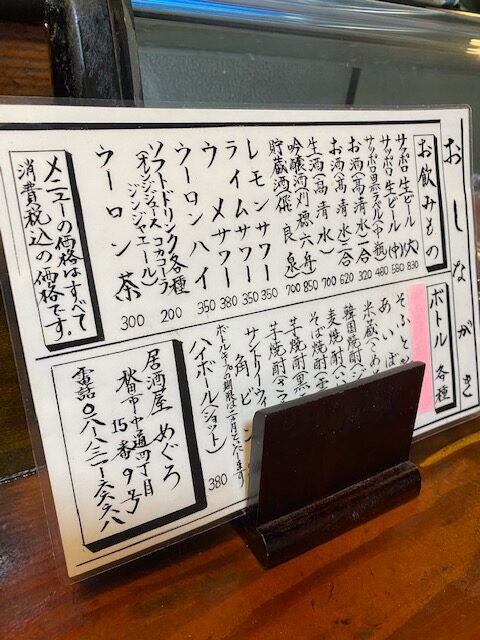 おしながき
お飲みもの
サッポロ生ビール(大) 830
サッポロ生ビール(中) 580
サッポロ黒ラベル(中瓶) 680
お酒(高清水)一合 320
お酒(高清水)二合 620
生酒(高清水) 700
吟醸酒刈穂六舟 850
貯蔵酒飛良泉 700
レモンサワー 350
ライムサワー 350
ウメサワー 380
ウーロンハイ 350
ソフトドリンク各種 200
(オレンジジュース コカコーラ
ジンジャエール)
ウーロン茶 300
メニューの価格はすべて
消費税込の価格です。
ボトル 各種
そふと
あいば
米蔵(こめ
韓国焼酎(
麦焼酎(
そば焼酎(
芋焼酎(黒
芋焼酎(
サントリー
角ビン
ボトルキープの期限は
ハイボール(ショット) 380
居酒屋 めぐろ
秋田市中通四丁目
15番9号
電話